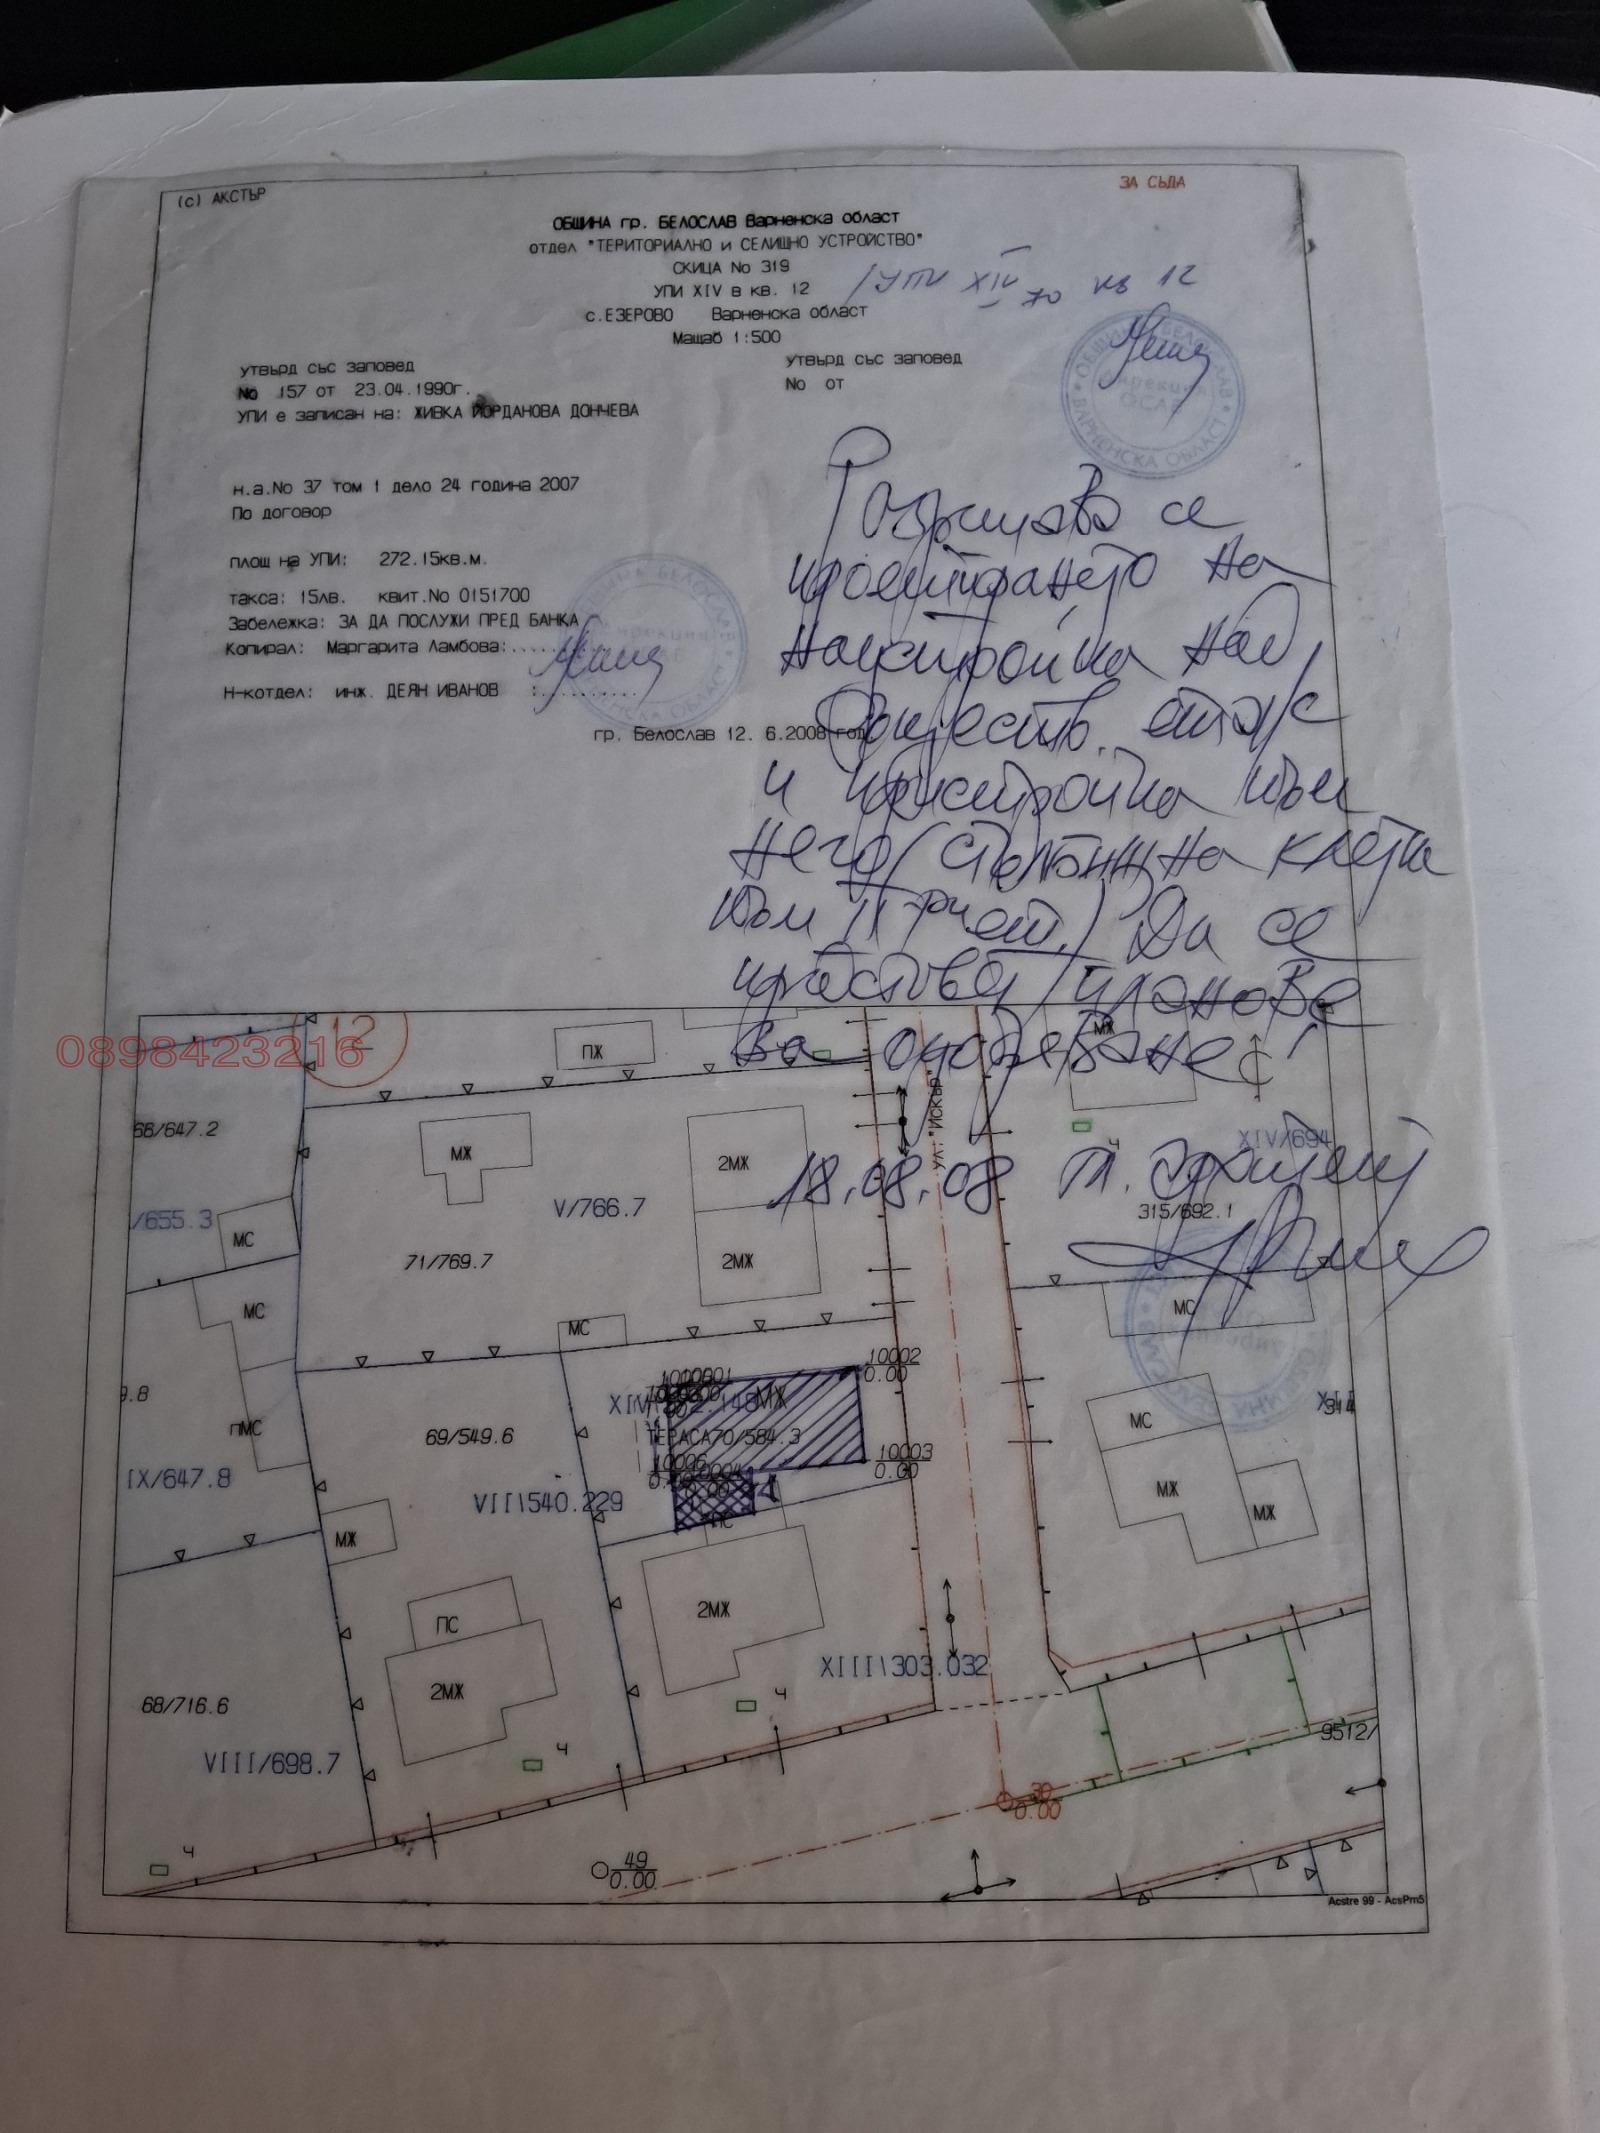 (с) АКСТЪР
ЗА СЪДА
ОБЩИНА гр. БЕЛОСЛАВ Варненска област
отдел "ТЕРИТОРИАЛНО и СЕЛИЩНО УСТРОЙСТВО"
СКИЦА No 319
УПИ XIV в кв. 12
/УПИ XIV 70 кв 12
с.ЕЗЕРОВО Варненска област
Мащаб 1:500
утвърд със заповед
No 157 от 23.04.1990г.
УПИ е записан на: ЖИВКА ЙОРДАНОВА ДОНЧЕВА
утвърд със заповед
No от
н.а.No 37 том 1 дело 24 година 2007
По договор
площ на УПИ: 272.15кв.м.
такса: 15лв. квит.No 0151700
Забележка: ЗА ДА ПОСЛУЖИ ПРЕД БАНКА
Копирал: Маргарита Ламбова:
Н-котдел: инж. ДЕЯН ИВАНОВ :
гр. Белослав 12. 6.2008 год.
Разрешава се
проектирането на
надстройка над
съществ. етаж
и пристройка към
него/стълбищна клетка
към II ри ет./ Да се
представят планове
за одобряване!
18.08.08 гл. архитект
0898423216
12
ПЖ
МЖ
68/647.2
МЖ
2МЖ
V/766.7
ул."ИСКЪР"
XIV/694
ч
/655.3
МС
71/769.7
2МЖ
315/692.1
МС
МС
МС
10002
0.00
9.8
ПМС
69/549.6
МЖ
ТЕРАСА 70/584.3
10003
0.00
МС
314
IX/647.8
VII/540.229
10006
10004
0.00
ПС
МЖ
МЖ
МЖ
ПС
2МЖ
2МЖ
XIII/303.032
68/716.6
VIII/698.7
ч
ч
ч
9512/
30
0.00
49
0.00
Acstre 99 - AcsPm5